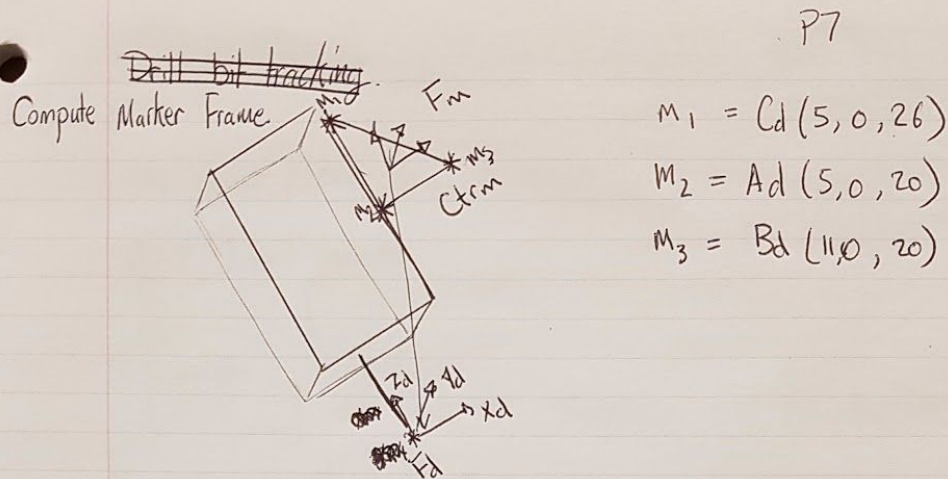 P7
Drill bit tracking
Compute Marker Frame
M1 Fm
M3
Ctrm
M2
M1 = Cd (5, 0, 26)
M2 = Ad (5, 0, 20)
M3 = Bd (11,0, 20)
Zd Yd Xd
Fd